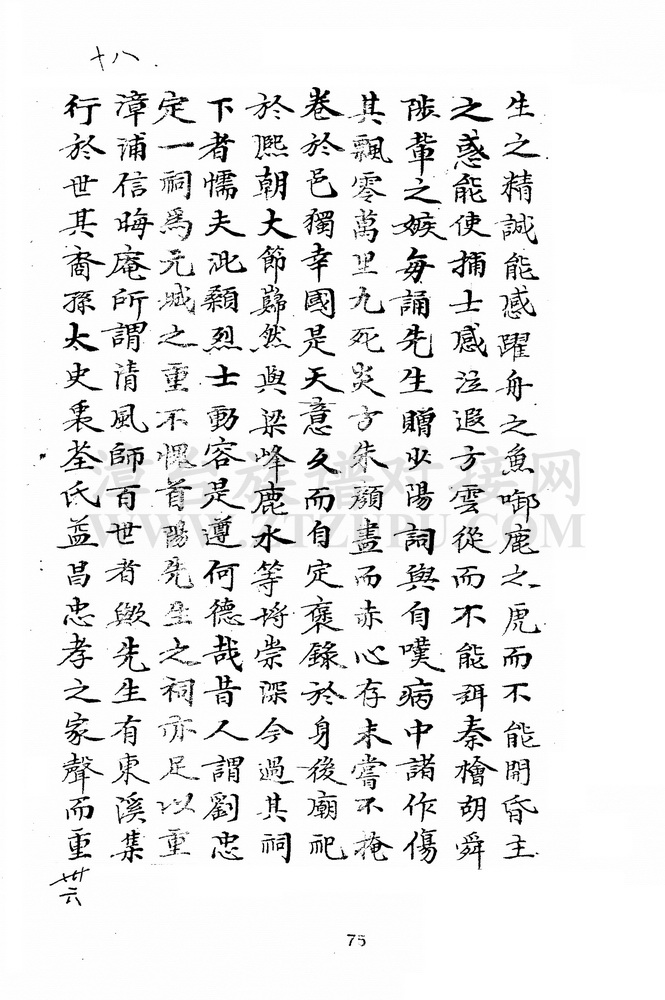 十八
生之精誠能感躍舟之魚啣鹿之虎而不能開昏主
之惑能使捕士感泣遐方雲從而不能弭秦檜胡舜
陟輩之嫉每誦先生贈少陽詞與自嘆病中諸作傷
其飄零萬里九死炎方朱顏盡而赤心存未嘗不掩
卷於邑獨幸國是天意久而自定褒錄於身後廟祀
於熙朝大節巋然與梁峰鹿水等埒崇深今過其祠
下者懦夫泚顙烈士動容是遵何德哉昔人謂劉忠
定一祠為元城之重不愧首陽先生之祠亦足以重
漳浦信晦庵所謂清風師百世者歟先生有東溪集
行於世其裔孫太史裏荃氏益昌忠孝之家聲而重
卅六
75
漳台族谱对接网
WWW.ZTZUPU.COM